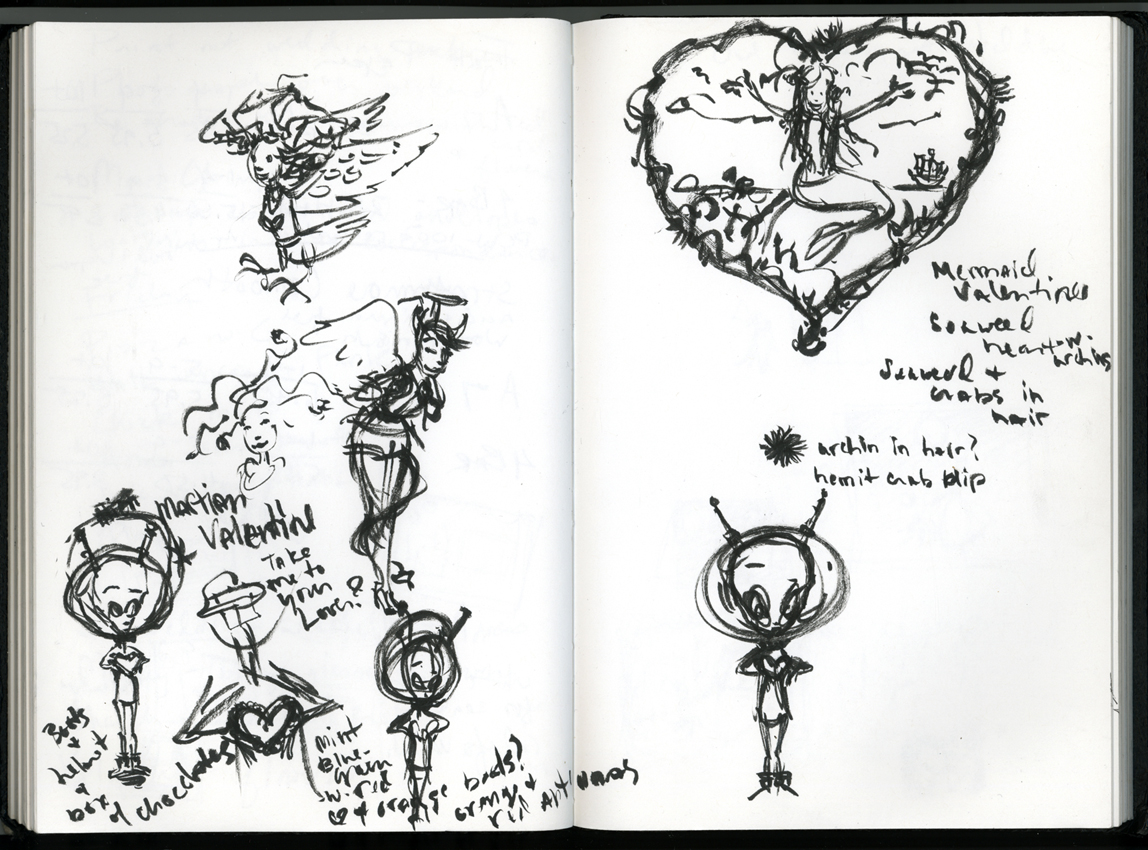 Martian
Valentine
Take
me to
your
Lover?
Boots
+
helmet
a
box
of chocolates
mint
Blue-
green
w. red
+ orange boots?
orange +
red Antennas
Mermaid
Valentine
Seaweed
heart w.
urchins
Seaweed +
crabs in
hair
urchin in hair?
hermit crab